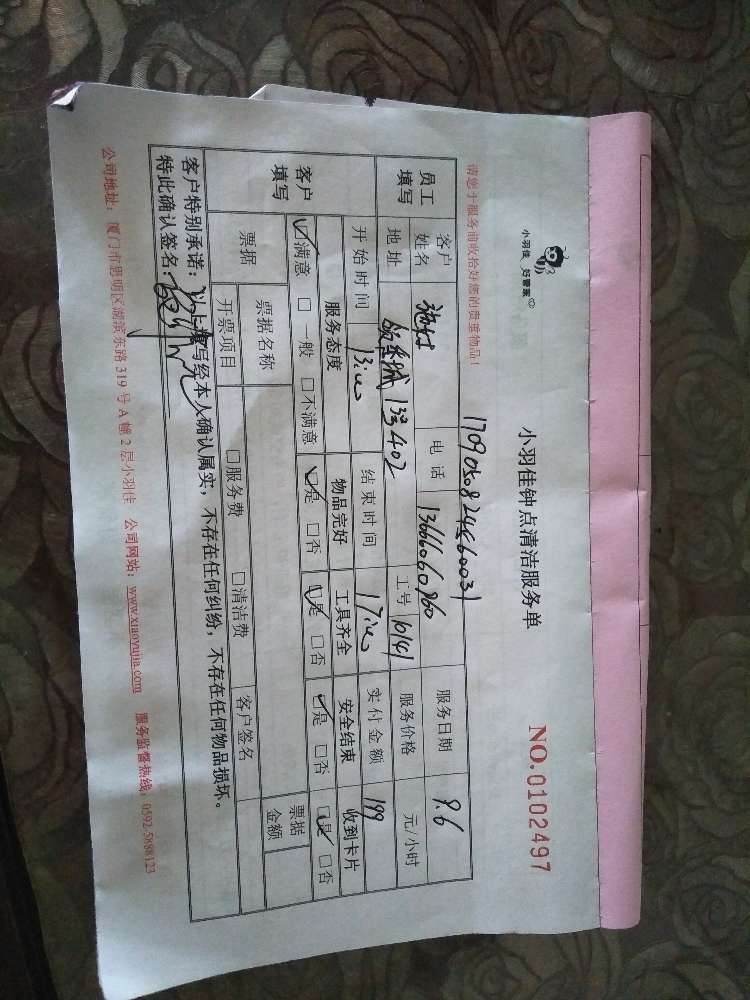 小羽佳 好管家
小羽佳钟点清洁服务单
NO.0102497
请您于服务前收拾好您的贵重物品！
员工填写 客户姓名 电话 13666060960 服务日期 9.6
地址 133402 工号 10141 服务价格 元/小时
开始时间 13:00 结束时间 17:00 实付金额 199
客户填写 服务态度 物品完好 工具齐全 安全结束 收到卡片
☑满意 □一般 □不满意 ☑是 □否 ☑是 □否 ☑是 □否 ☑是 □否
票据 票据名称 票据金额
开票项目 □服务费 □清洁费 客户签名
客户特别承诺：以上填写经本人确认属实，不存在任何纠纷，不存在任何物品损坏。
特此确认签名：
公司地址：厦门市思明区湖滨东路319号A幢2层小羽佳 公司网站：www.xiaoyujia.com 服务监督热线：0592-5888123